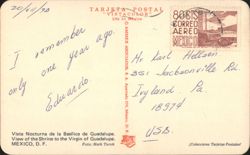 20/10/70
TARJETA POSTAL
"VISTACOLOR"
80¢
CORREO
AEREO
MEXICO
I remember
only one year ago.
Eduardo
Mr. Karl
351 Jacksonville Rd
Ivyland Pa
18974
USA.
Vista Nocturna de la Basílica de Guadalupe.
View of the Shrine to the Virgin of Guadalupe.
MEXICO, D. F.
Foto: Mark Turok
(Colecciones Tarjetas Postales)